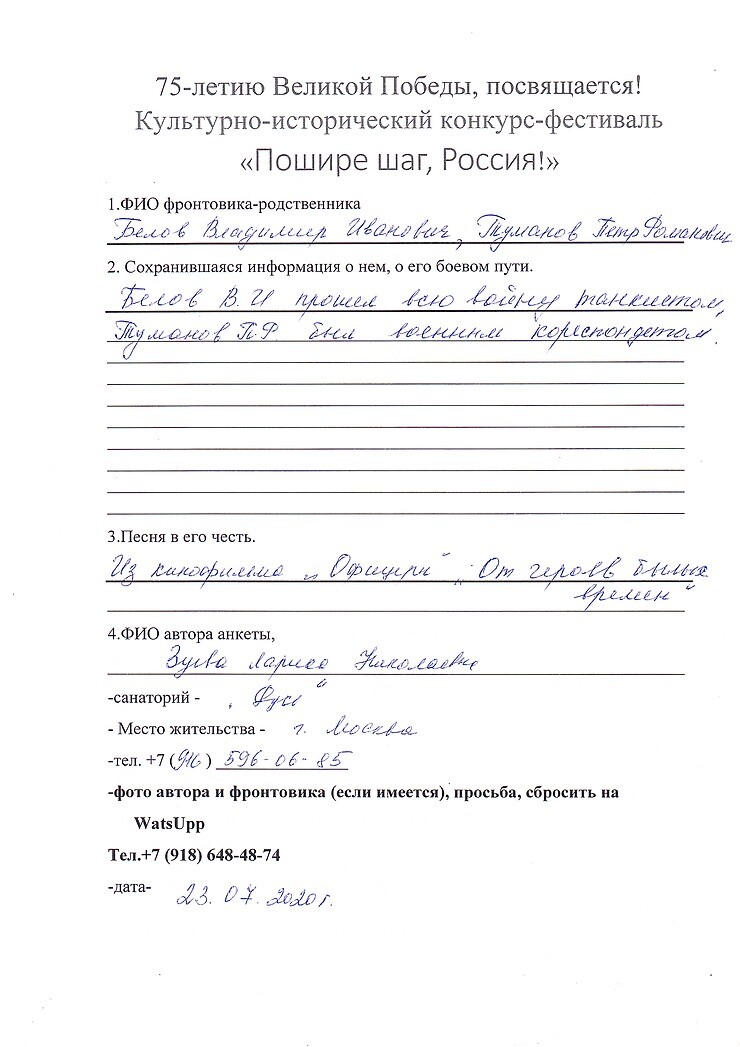 75-летию Великой Победы, посвящается!
Культурно-исторический конкурс-фестиваль
«Пошире шаг, Россия!»
1.ФИО фронтовика-родственника
Белов Владимир Иванович, Туманов Петр Романович
2. Сохранившаяся информация о нем, о его боевом пути.
Белов В.И прошел всю войну танкистом,
Туманов П.Р. был военным кореспондетом.
3.Песня в его честь.
Из кинофильма „Офицеры" „От героев былых
времен"
4.ФИО автора анкеты,
Зуева Лариса Николаевна
-санаторий -
- Место жительства - г. Москва
-тел. +7 (916) 596-06-85
-фото автора и фронтовика (если имеется), просьба, сбросить на
WatsUpp
Тел.+7 (918) 648-48-74
-дата- 23.07.2020г.